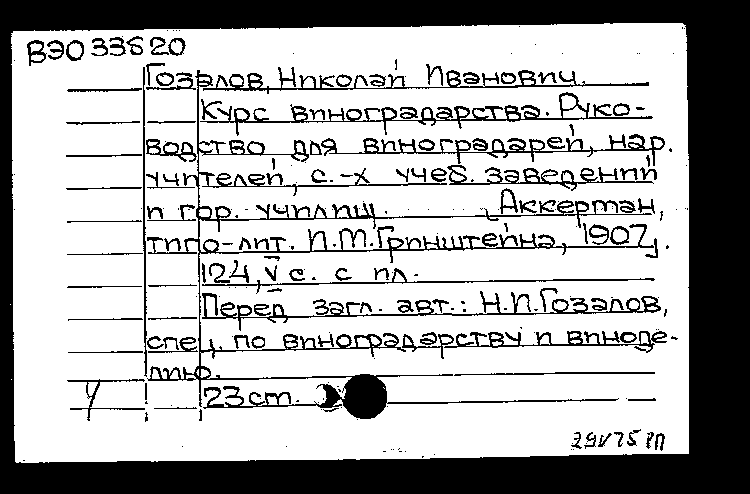 ВЭО 33820
Гозалов, Николай Иванович.
Курс виноградарства. Руко-
водство для виноградарей, нар.
учителей, с.-х учеб. заведений
и гор. училищ. [Аккерман,
типо-лит. И.М. Гринштейна, 1907].
124, V с. с ил.
Перед загл. авт.: Н.И. Гозалов,
спец. по виноградарству и виноде-
лию.
23 ст.